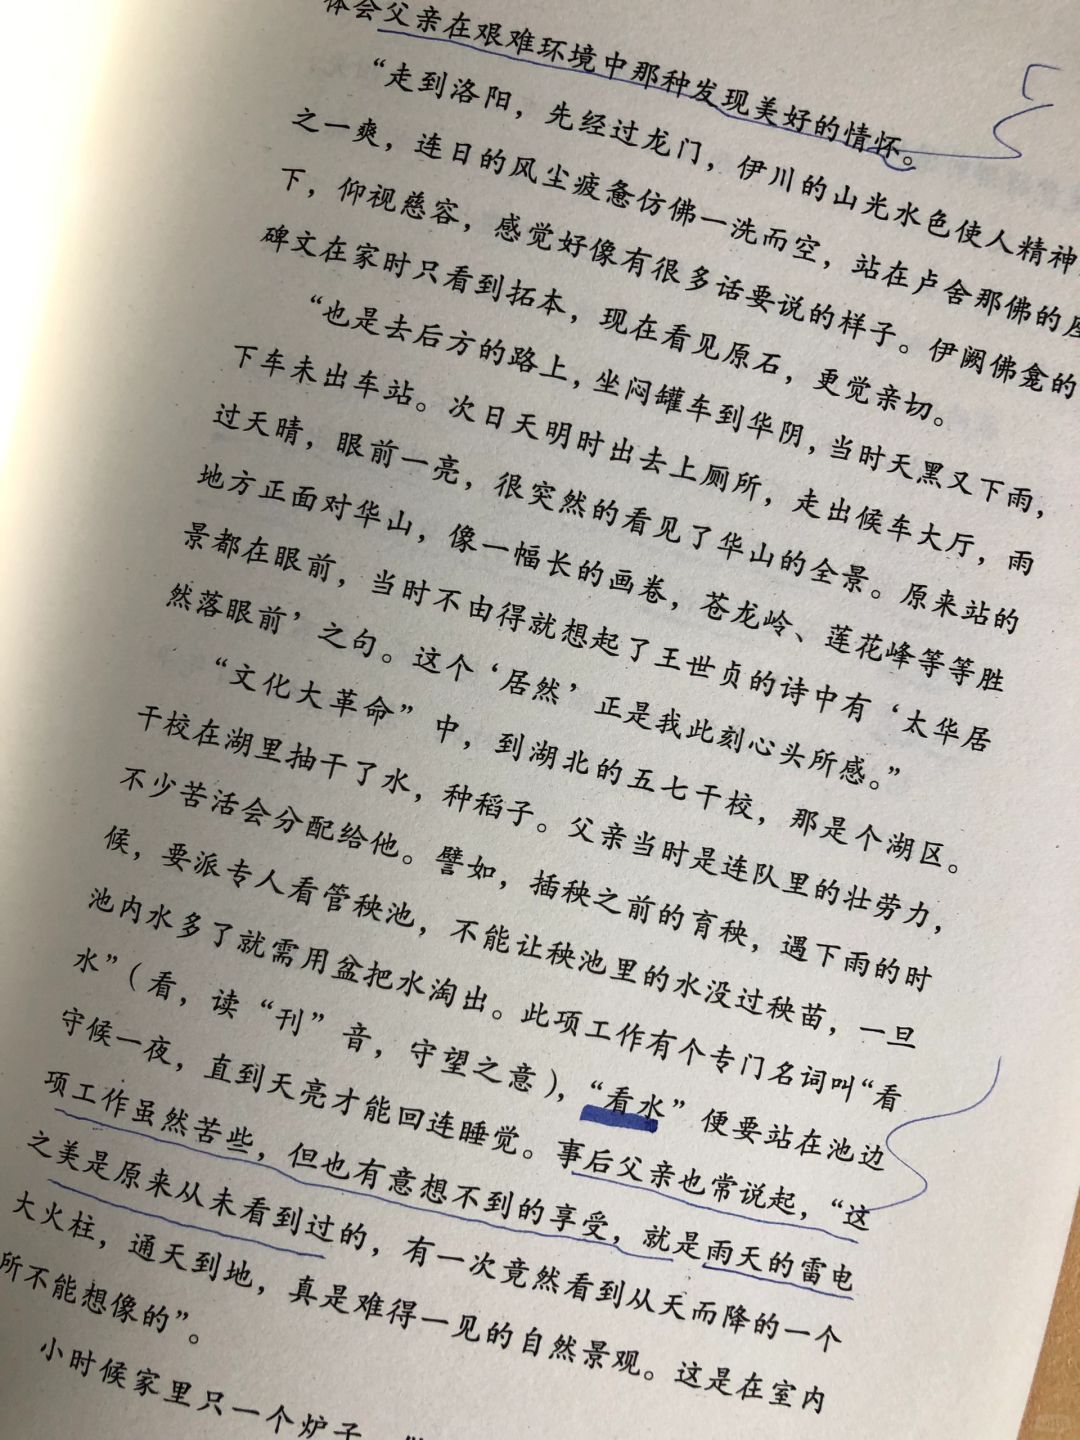 体会父亲在艰难环境中那种发现美好的情怀。
“走到洛阳，先经过龙门，伊川的山光水色使人精神
之一爽，连日的风尘疲惫仿佛一洗而空，站在卢舍那佛的座
下，仰视慈容，感觉好像有很多话要说的样子。伊阙佛龛的
碑文在家时只看到拓本，现在看见原石，更觉亲切。
“也是去后方的路上，坐闷罐车到华阴，当时天黑又下雨，
下车未出车站。次日天明时出去上厕所，走出候车大厅，雨
过天晴，眼前一亮，很突然的看见了华山的全景。原来站的
地方正面对华山，像一幅长的画卷，苍龙岭、莲花峰等等胜
景都在眼前，当时不由得就想起了王世贞的诗中有‘太华居
然落眼前’之句。这个‘居然’正是我此刻心头所感。”
“文化大革命”中，到湖北的五七干校，那是个湖区。
干校在湖里抽干了水，种稻子。父亲当时是连队里的壮劳力，
不少苦活会分配给他。譬如，插秧之前的育秧，遇下雨的时
候，要派专人看管秧池，不能让秧池里的水没过秧苗，一旦
池内水多了就需用盆把水淘出。此项工作有个专门名词叫“看
水”（看，读“刊”音，守望之意），“看水”便要站在池边
守候一夜，直到天亮才能回连睡觉。事后父亲也常说起，“这
项工作虽然苦些，但也有意想不到的享受，就是雨天的雷电
之美是原来从未看到过的，有一次竟然看到从天而降的一个
大火柱，通天到地，真是难得一见的自然景观。这是在室内
所不能想像的”。
小时候家里只一个炉子，